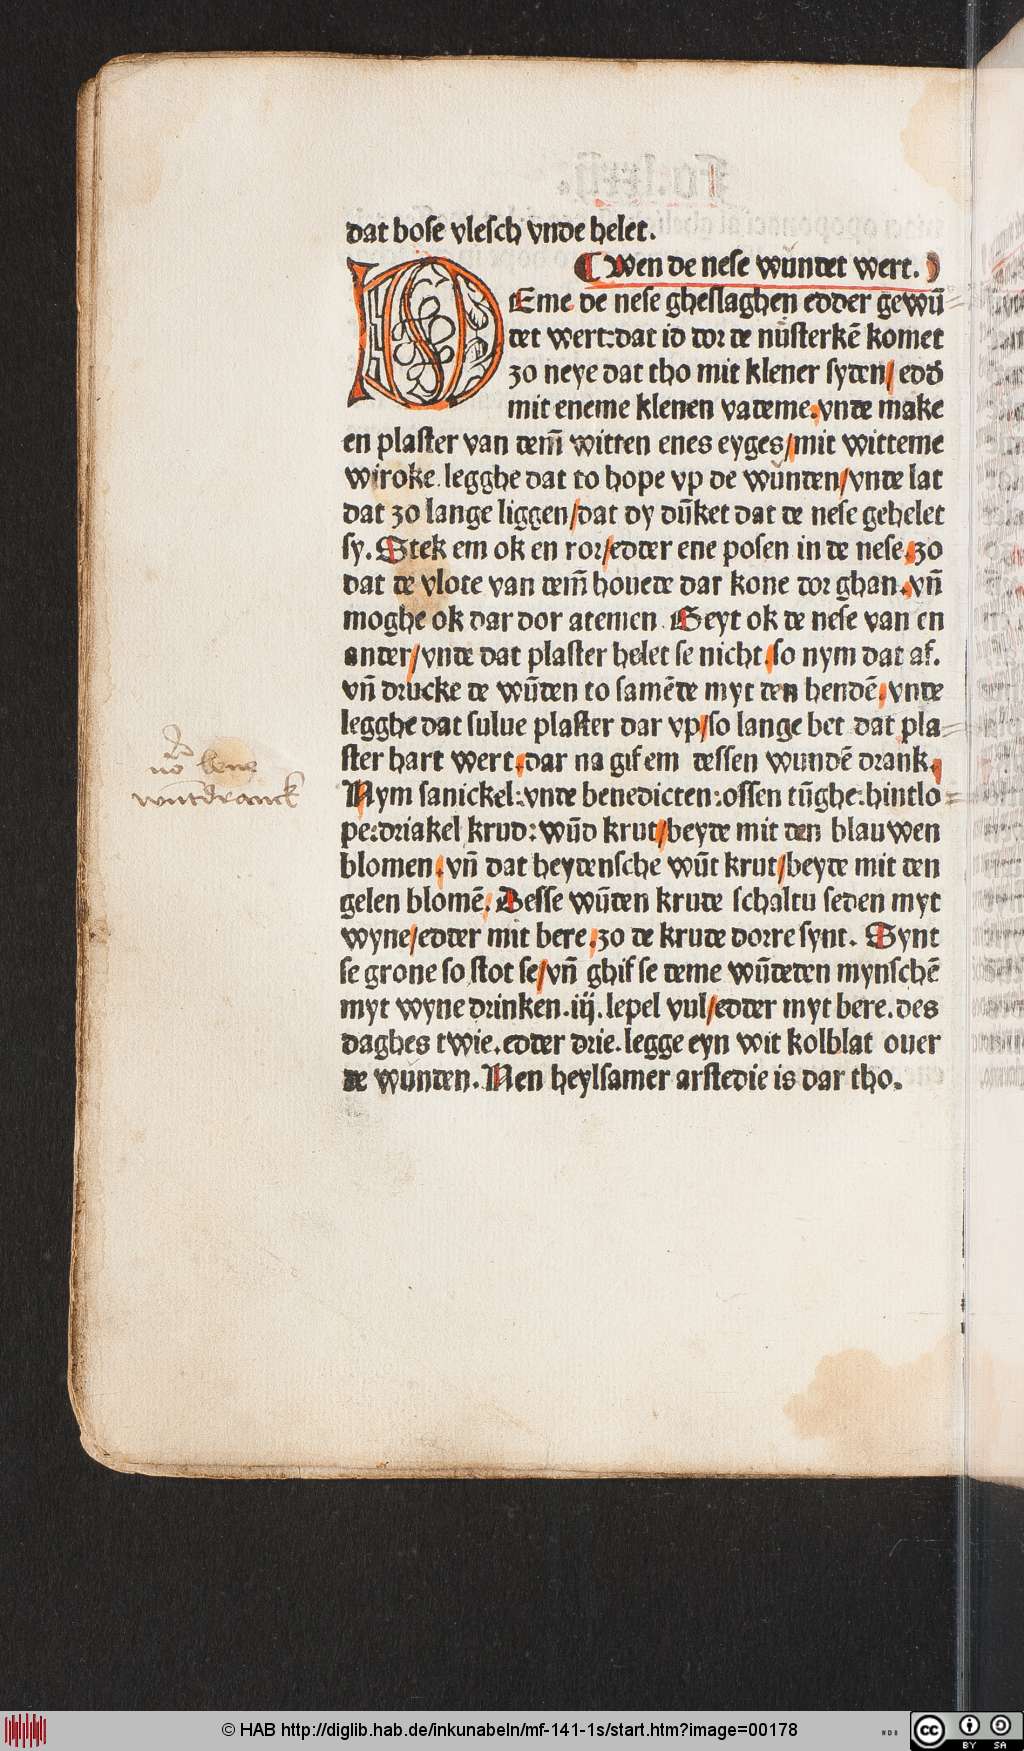 dat bose vlesch vnde helet.
Wen de nese wundet wert.
DEme de nese gheslaghen edder gewū
det wert:dat id dor de nu̅sterkē komet
zo neye dat tho mit klener syden/ edď
mit eneme klenen vademe.vnde make
en plaster van dem̄ witten enes eyges/mit witteme
wiroke.legghe dat to hope vp de wunden/vnde lat
dat zo lange liggen/dat dy du̅ket dat de nese gehelet
sy. Stek em ok en ror/edder ene posen in de nese.zo
dat de vlote van dem̄ houede dar kone dor ghan.vn̄
moghe ok dar dor atemen. Geyt ok de nese van en
ander/vnde dat plaster helet se nicht.so nym dat af.
vn̄ drucke de wu̅den to samēde myt den hendē.vnde
legghe dat sulue plaster dar vp/so lange bet dat pla⸗
ster hart wert.dar na gif em dessen wundē drank.
Nym sanickel:vnde benedicten:ossen tu̅ghe:hintlo⸗
pe:driakel krud:wu̅d krut/beyde mit den blauwen
blomen.vn̄ dat heydensche wu̅t krut/beyde mit den
gelen blomē. Desse wu̅den krude schaltu seden myt
wyne/edder mit bere.zo de krude dorre synt. Synt
se grone so stot se/vn̄ ghif se deme wu̅deden mynschē
myt wyne drinken.iij.lepel vul/edder myt bere.des
daghes twie.edder drie.legge eyn wit kolblat ouer
de wunden. Nen heylsamer arstedie is dar tho.
wūtdranck
© HAB http://diglib.hab.de/inkunabeln/mf-141-1s/start.htm?image=00178
WDB
cc
BY SA